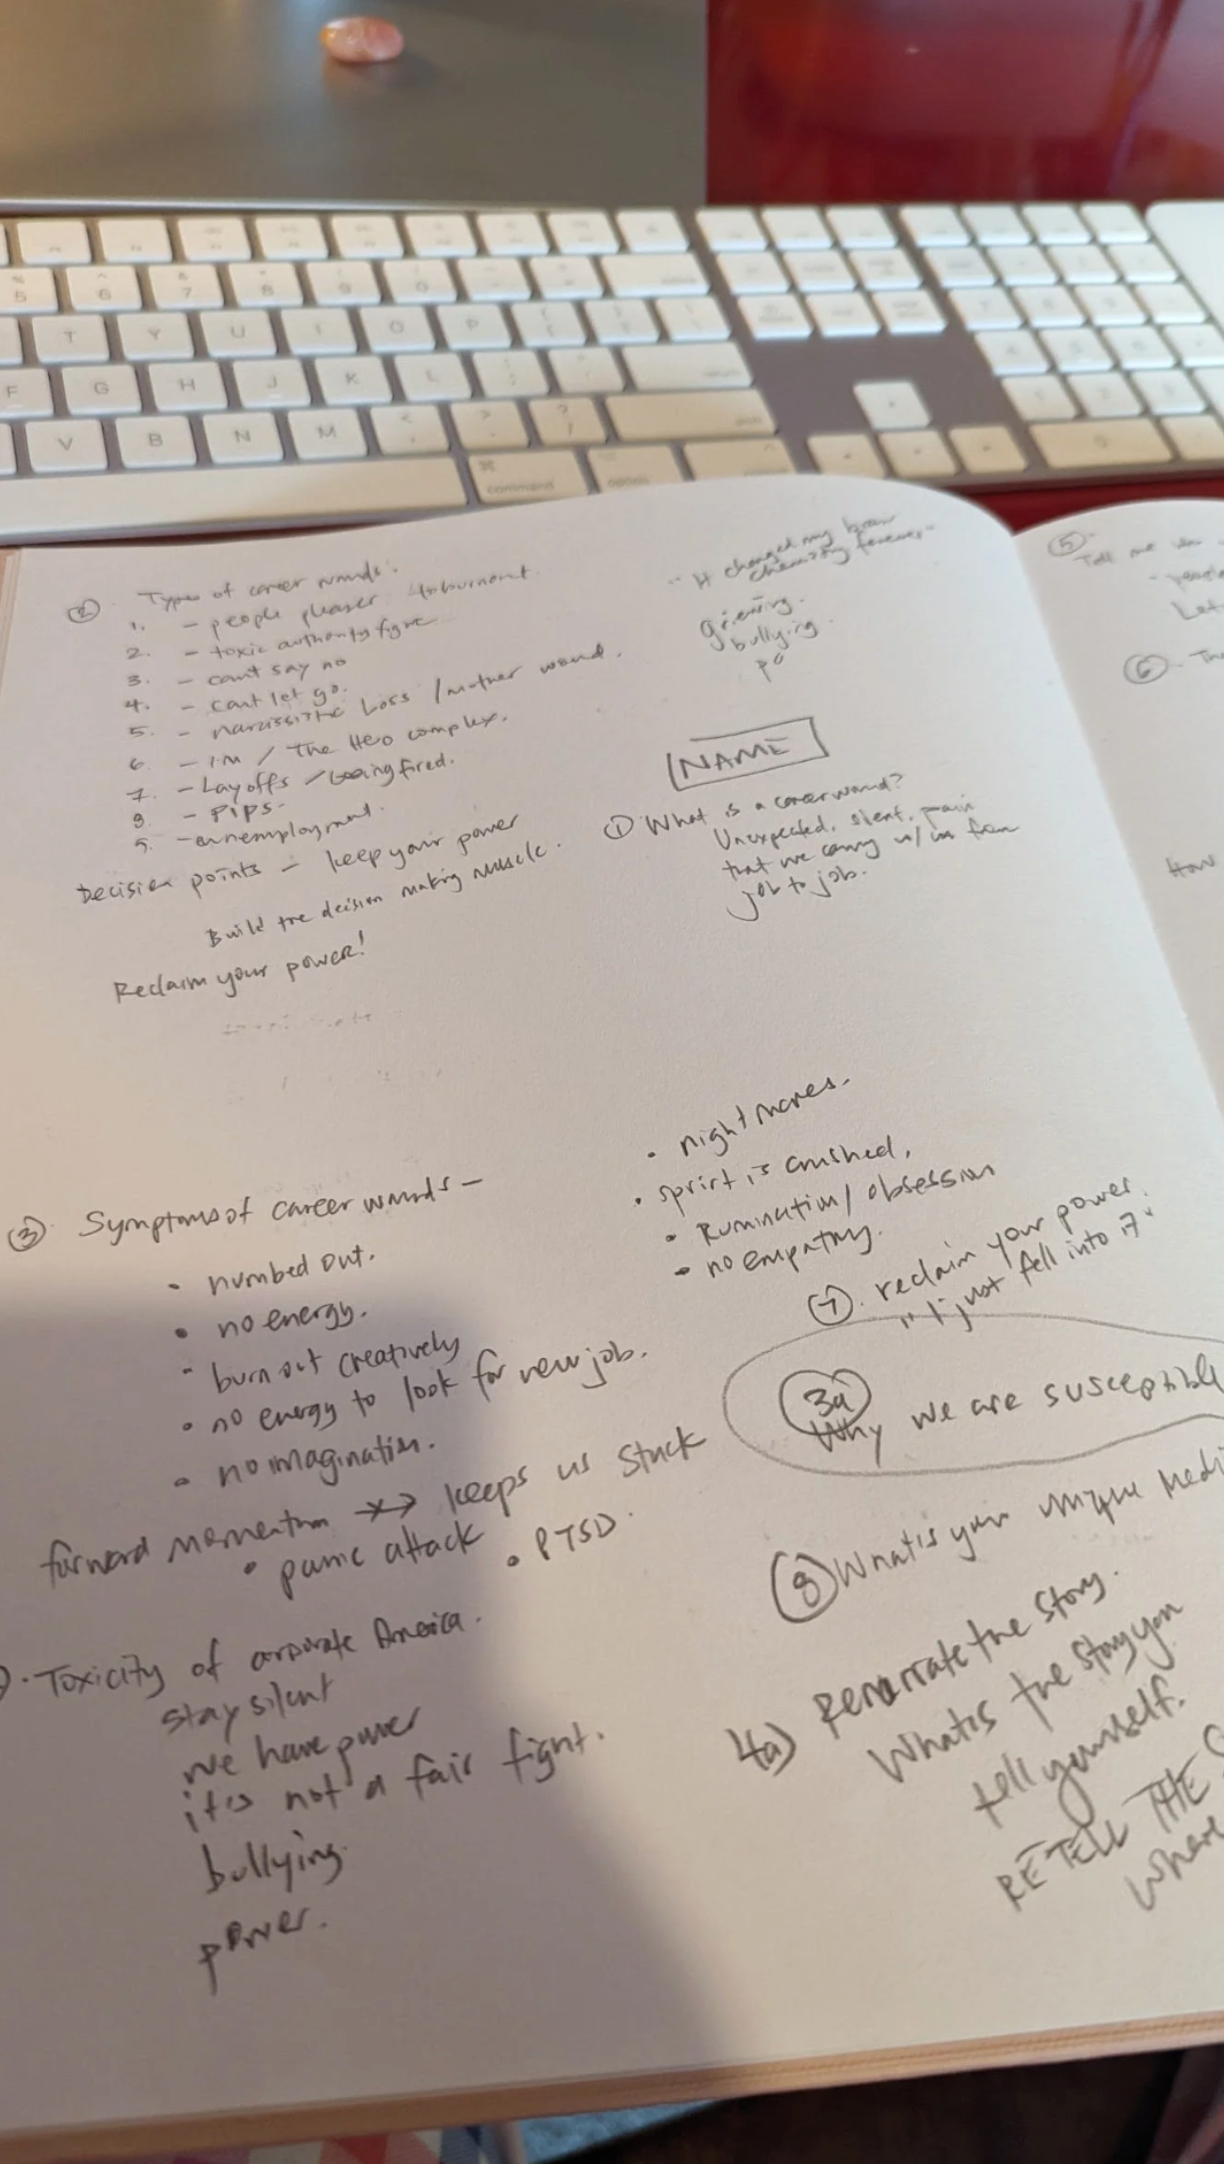 5
6
7
8
9
0
T
Y
U
I
O
P
F
G
H
J
K
L
V
B
N
M
command
option
② Types of career wounds:
1. - people pleaser to burnout.
2. - toxic authority figure
3. - cant say no
4. - cant let go.
5. - narcissistic Loss / mother wound.
6. - I'm / The Hero complex.
7. - Layoffs / being fired.
8. - PIPS.
9. - unemployment.
Decision points - keep your power
Build the decision making muscle.
Reclaim your power!
"It changed my brain
chemistry forever."
grieving.
bullying.
po
NAME
① What is a career wound?
Unexpected, silent, pain
that we carry w/ us from
job to job.
③ Symptoms of career wounds -
• numbed out.
• no energy.
• burn out creatively
• no energy to look for new job.
• no imagination.
forward momentum keeps us stuck
• panic attack • PTSD.
• nightmares.
• spirit is crushed,
• Rumination / obsession
• no empathy.
⑦. reclaim your power.
"I just fell into it"
3a
Why we are susceptible
⑧ What is your unique Medi
. Toxicity of corporate America.
stay silent
we have power
it's not a fair fight.
bullying.
power.
4a) Renarrate the story.
What is the story you
tell yourself.
RETELL THE S
where
⑤.
Tell me
Let
⑥.
How